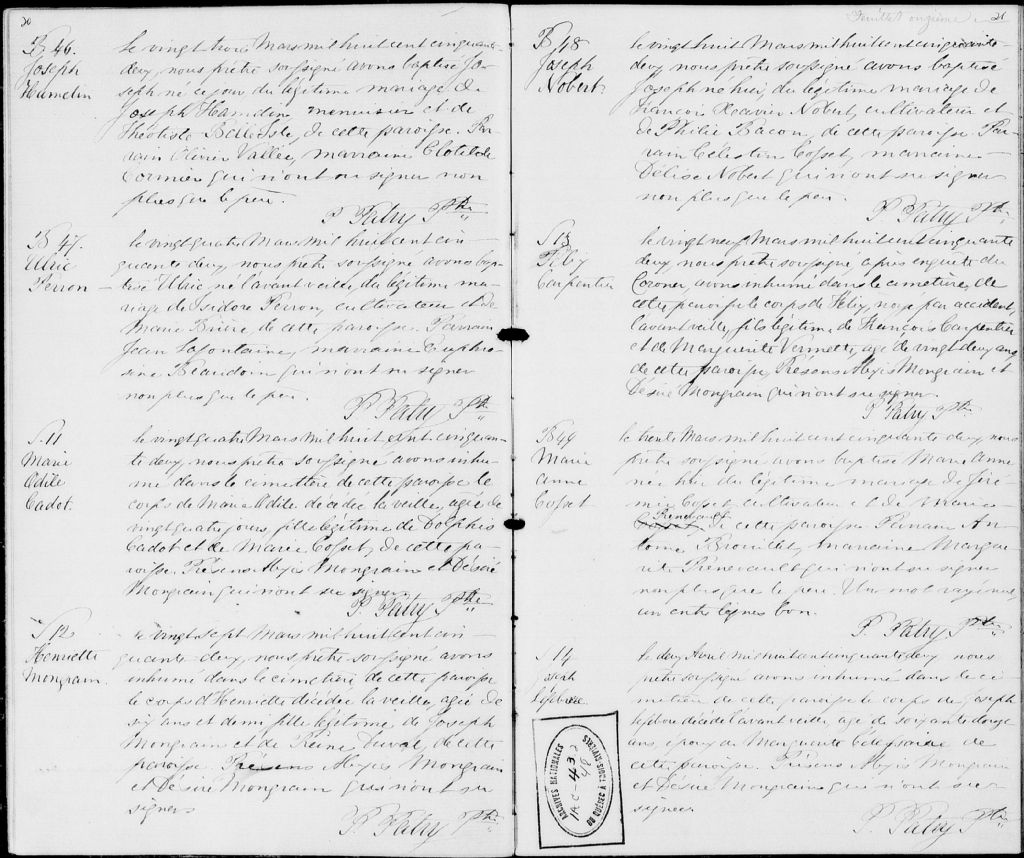 20
B 46.
Joseph
Hamelin
Le vingt trois Mars mil huit cent cinquante
deux, nous prêtre soussigné avons baptisé Jo-
seph né ce jour du légitime mariage de
Joseph Hamelin, menuisier et de
Théotiste Belle Isle, de cette paroisse. Par-
rain Olivier Vallée, marraine Clotilde
Cormier qui n'ont su signer non
plus que le père.
P. Patry Ptre
B 47.
Ulric
Perron
Le vingt quatre Mars mil huit cent cin-
quante deux, nous prêtre soussigné avons bap-
tisé Ulric né l'avant veille, du légitime ma-
riage de Isidore Perron, cultivateur et de
Marie Brière de cette paroisse. Parrain
Jean Lafontaine, marraine Euphro-
sine Beaudoin qui n'ont su signer
non plus que le père.
P. Patry Ptre
S. 11
Marie
Odile
Cadot.
Le vingt quatre Mars mil huit cent cinquan-
te deux, nous prêtre soussigné avons inhu-
mé dans le cimetière de cette paroisse le
corps de Marie Odile décédée la veille, agée de
vingt quatre jours, fille légitime de Dolphis
Cadot et de Marie Cosset, de cette pa-
roisse. Présens Alexis Mongrain et Désiré
Mongrain qui n'ont su signer.
P. Patry Ptre
S 12
Henriette
Mongrain.
Le vingt sept Mars mil huit cent cin-
quante deux, nous prêtre soussigné avons
inhumé dans le cimetière de cette paroisse
le corps d'Henriette décédée la veille, agée de
six ans et demi fille légitime, de Joseph
Mongrain et de Reine Duval, de cette
paroisse. Présens Alexis Mongrain
et Désiré Mongrain qui n'ont su
signer.
P. Patry Ptre
Feuillet onzième 21
B 48
Joseph
Nobert
Le vingt huit Mars mil huit cent cinquante
deux, nous prêtre soussigné avons baptisé
Joseph né hier, du légitime mariage de
François Xavier Nobert, cultivateur et
de Philie Bacon, de cette paroisse. Par-
rain Célestin Cosset, marraine
Délise Nobert qui n'ont su signer
non plus que le père.
P. Patry Ptre
S 13
Carpentier
Le vingt neuf Mars mil huit cent cinquante
deux, nous prêtre soussigné, après enquête du
Coroner, avons inhumé dans le cimetière, de
cette paroisse le corps de Félix, noyé par accident,
l'avant veille, fils légitime de François Carpentier
et de Marguerite Vermette, agé de vingt deux ans
de cette paroisse, Présens Alexis Mongrain et
Désiré Mongrain qui n'ont su signer.
P. Patry Ptre
B 49
Marie
Anne
Cosset
Le trente Mars mil huit cent cinquante deux nous
prêtre soussigné avons baptisé Marie Anne
née hier du légitime mariage de Jéré-
mie Cosset, cultivateur et de Marie
Renevault
Cosset, de cette paroisse Parrain An-
toine Brouillet, marraine Margue-
rite Rénevault qui n'ont su signer
non plus que le père. Un mot rayé nul,
un entre lignes bon.
P. Patry Ptre
S 14
Joseph
Lefebvre
Le deux Avril mil huit cent cinquante deux nous
prêtre soussigné avons inhumé dans le ci-
metière de cette paroisse le corps de Joseph
Lefebvre décédé l'avant veille, agé de soixante douze
ans, époux de Marguerite de
cette paroisse. Présens Alexis Mongrain
et Désiré Mongrain qui n'ont su
signer.
P. Patry Ptre
ARCHIVES NATIONALES
DU QUÉBEC À TROIS-RIVIÈRES